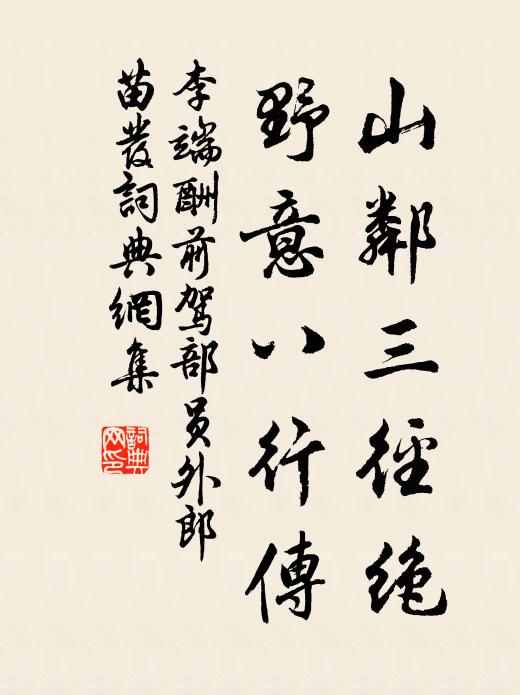 山鄰三徑絕
野意八行傳
李端酬前駕部員外郎
苗發詞典網集
詞典
网印